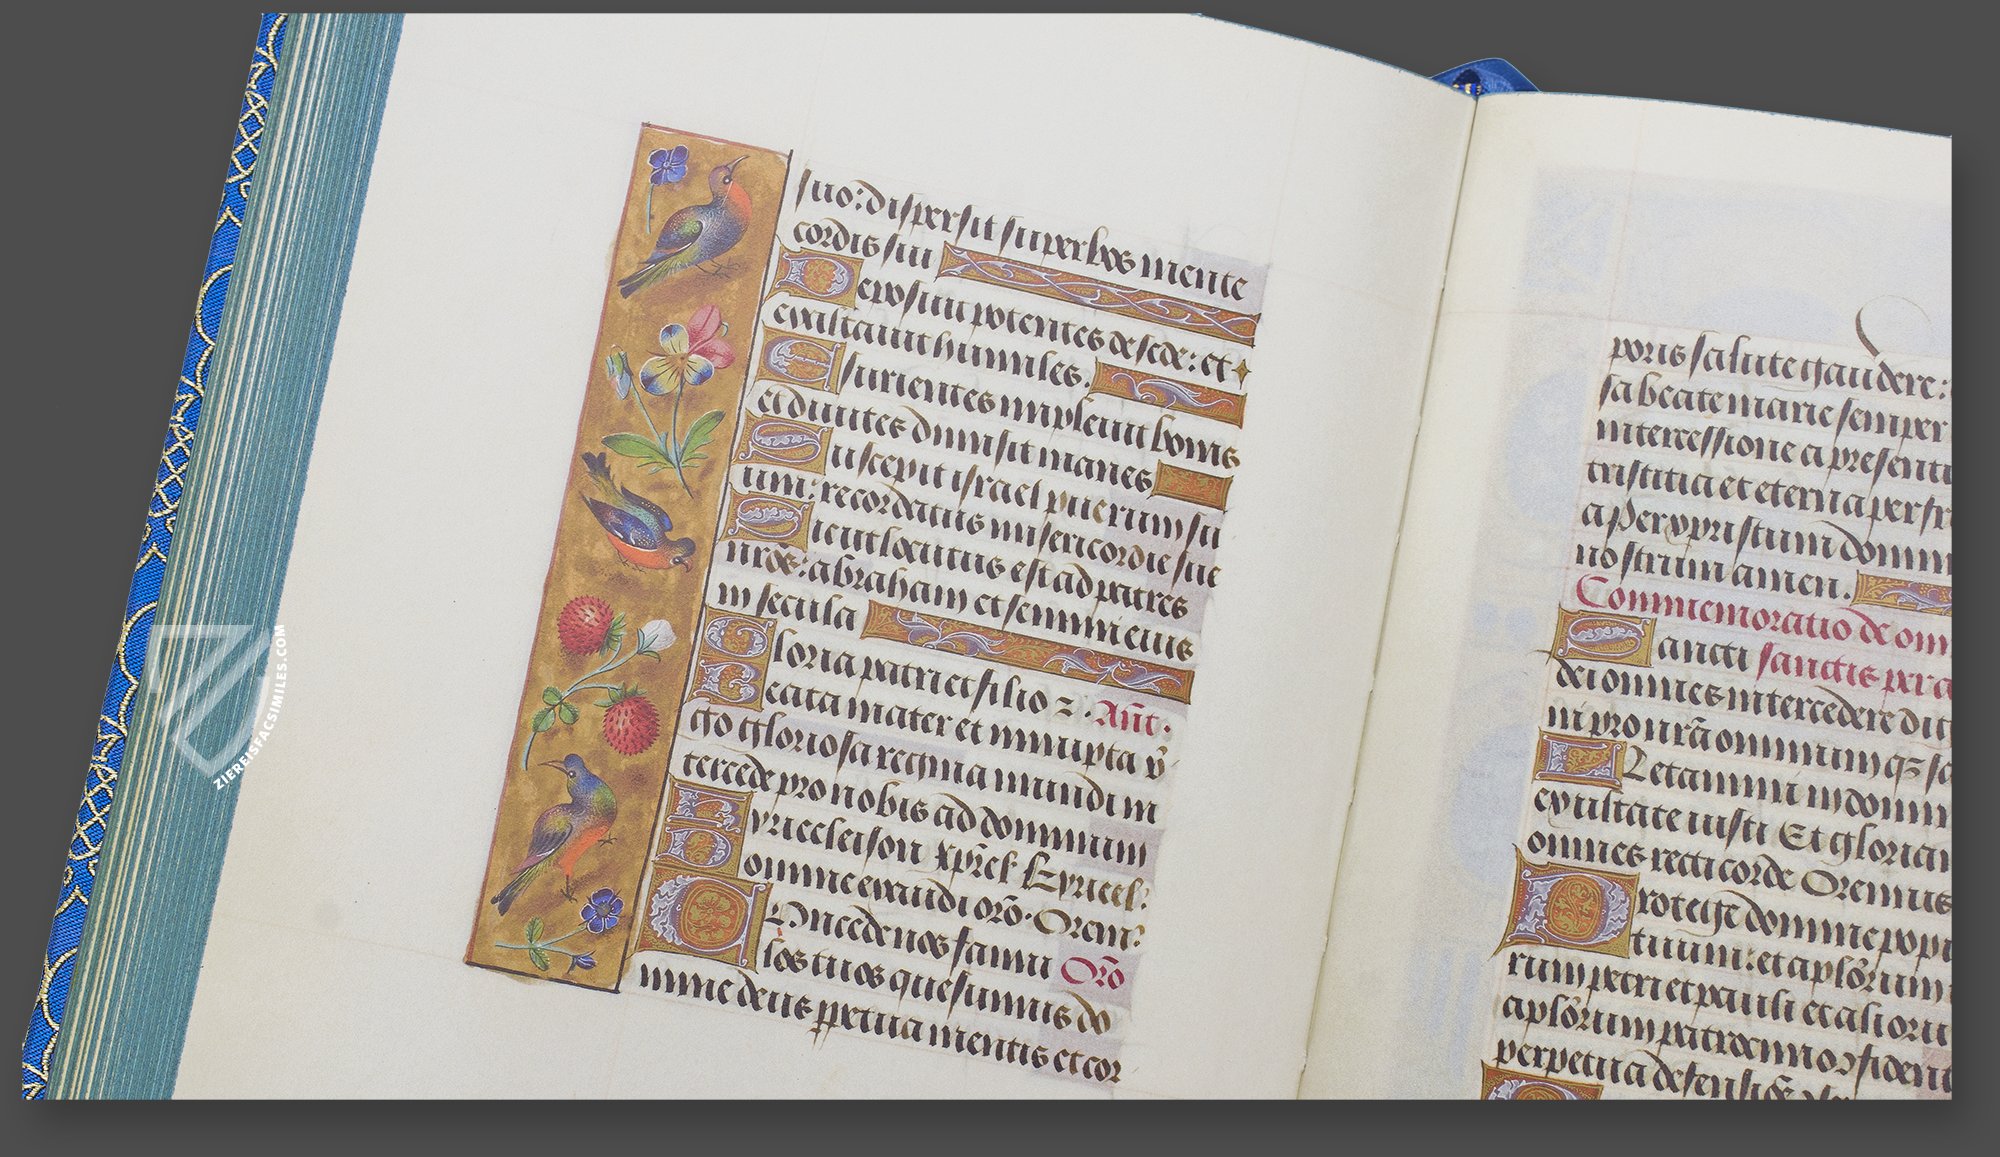 suo: dispersit superbos mente
cordis sui
Deposuit potentes de sede: et
exaltavit humiles.
Esurientes implevit bonis
et divites dimisit inanes
Suscepit israel puerum su
um: recordatus misericordie sue
Sicut locutus est ad patres
nros: abraham et semini eius
in secula
Gloria patri et filio z. Ant.
Beata mater et innupta v̄
go gloriosa regina mundi in
tercede pro nobis ad dominum
Kyrieeleison xp̄ieel. Kyrieel.
Domine exaudi orō. Orem̄.
Concede nos famu Orō
los tuos quesumus do
mine deus ꝑpetua mentis et cor
poris salute gaudere:
sa beate marie semper
intercessione a presenti
tristitia et eterna perfr
a Per xpristum domin
nostrum amen.
Commemoratio de om
Sancti sanctis pera
dei omnes intercedere dig
ini pro nr̄a omnium qз sa
Letamini in domin
exultate iusti Et glorian
omnes recti corde Oremus
Protege domine popu
tuum: et aplōrum
rum petri et pauli et alioru
aplōrum patrocinio fident
perpetua defensi
ZIEREISFACSIMILES.COM